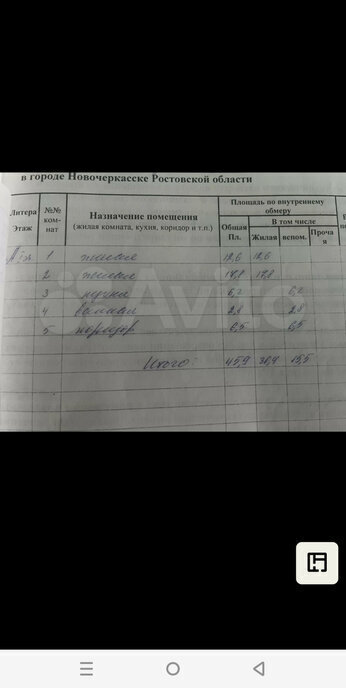 в городе Новочеркасске Ростовской области
Литера
Этаж
№№
ком-
нат
Назначение помещения
(жилая комната, кухня, коридор и т.п.)
Площадь по внутреннему
обмеру
Общая
Пл.
В том числе
Жилая
вспом.
Проча
я
1 жилые 12,6 12,6
2 жилые 17,8 17,8
3 кухня 6,2 6,2
4 ванная 2,8 2,8
5 коридор 6,5 6,5
Итого: 45,9 30,4 15,5
Avito